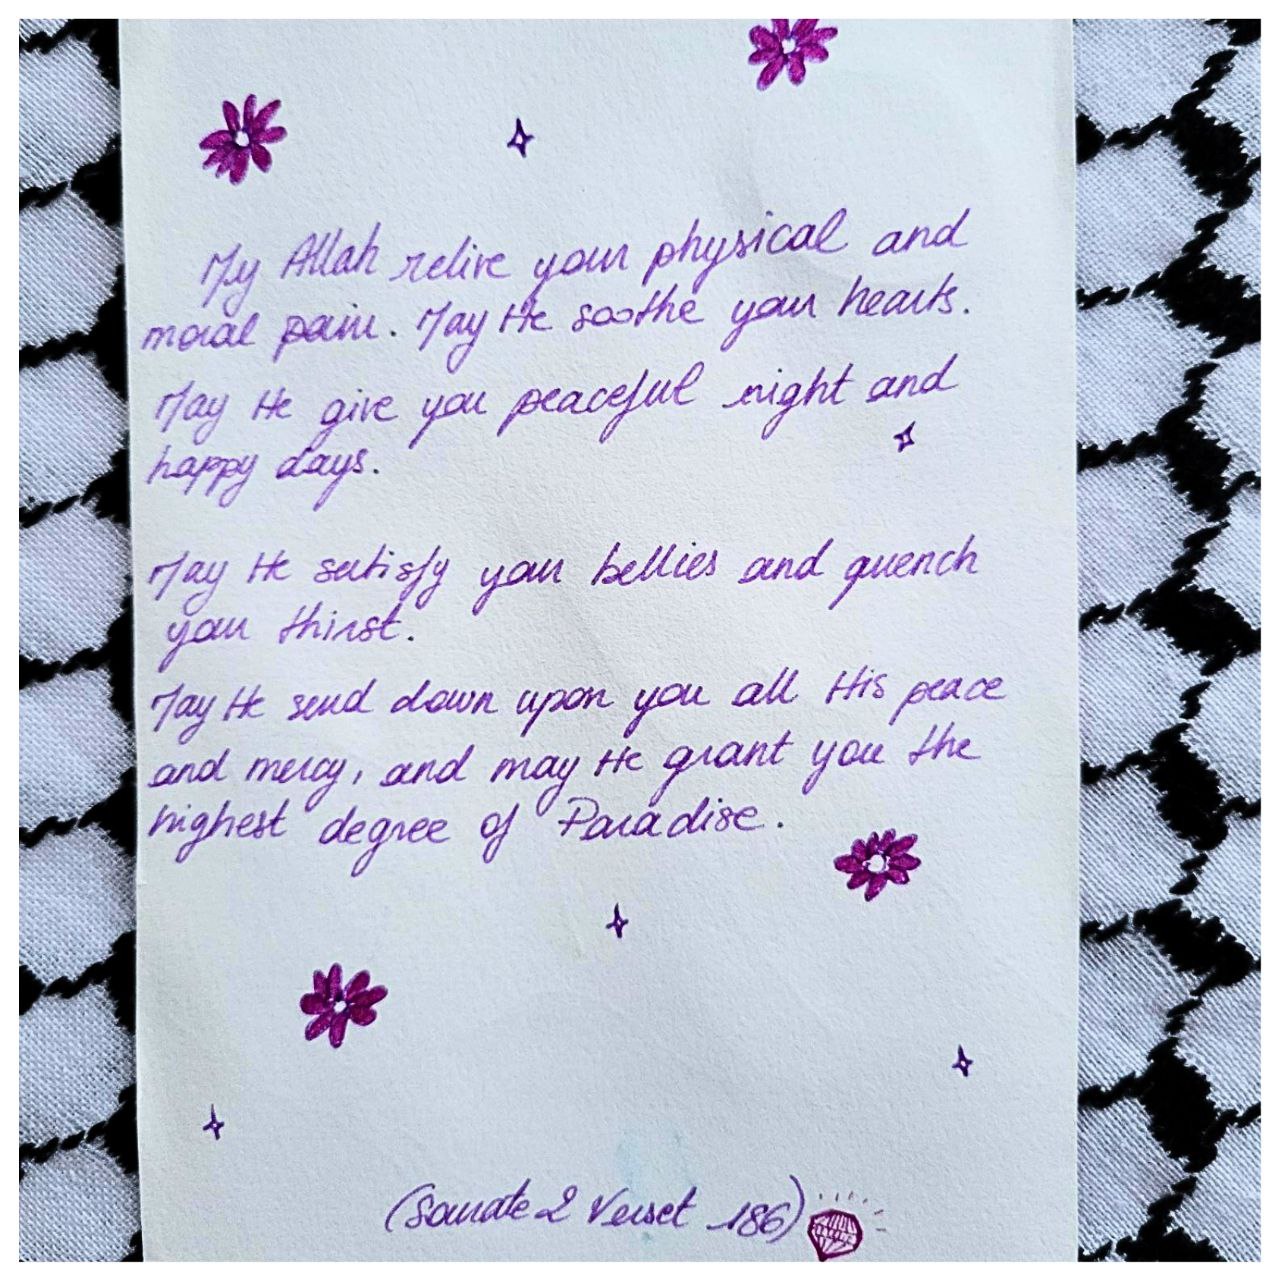 My Allah relive your physical and
moral pain. May He soothe your hearts.
May He give you peaceful night and
happy days.
May He satisfy your bellies and quench
your thirst.
May He send down upon you all His peace
and mercy, and may He grant you the
highest degree of Paradise.
(Sourate 2 Verset 186)